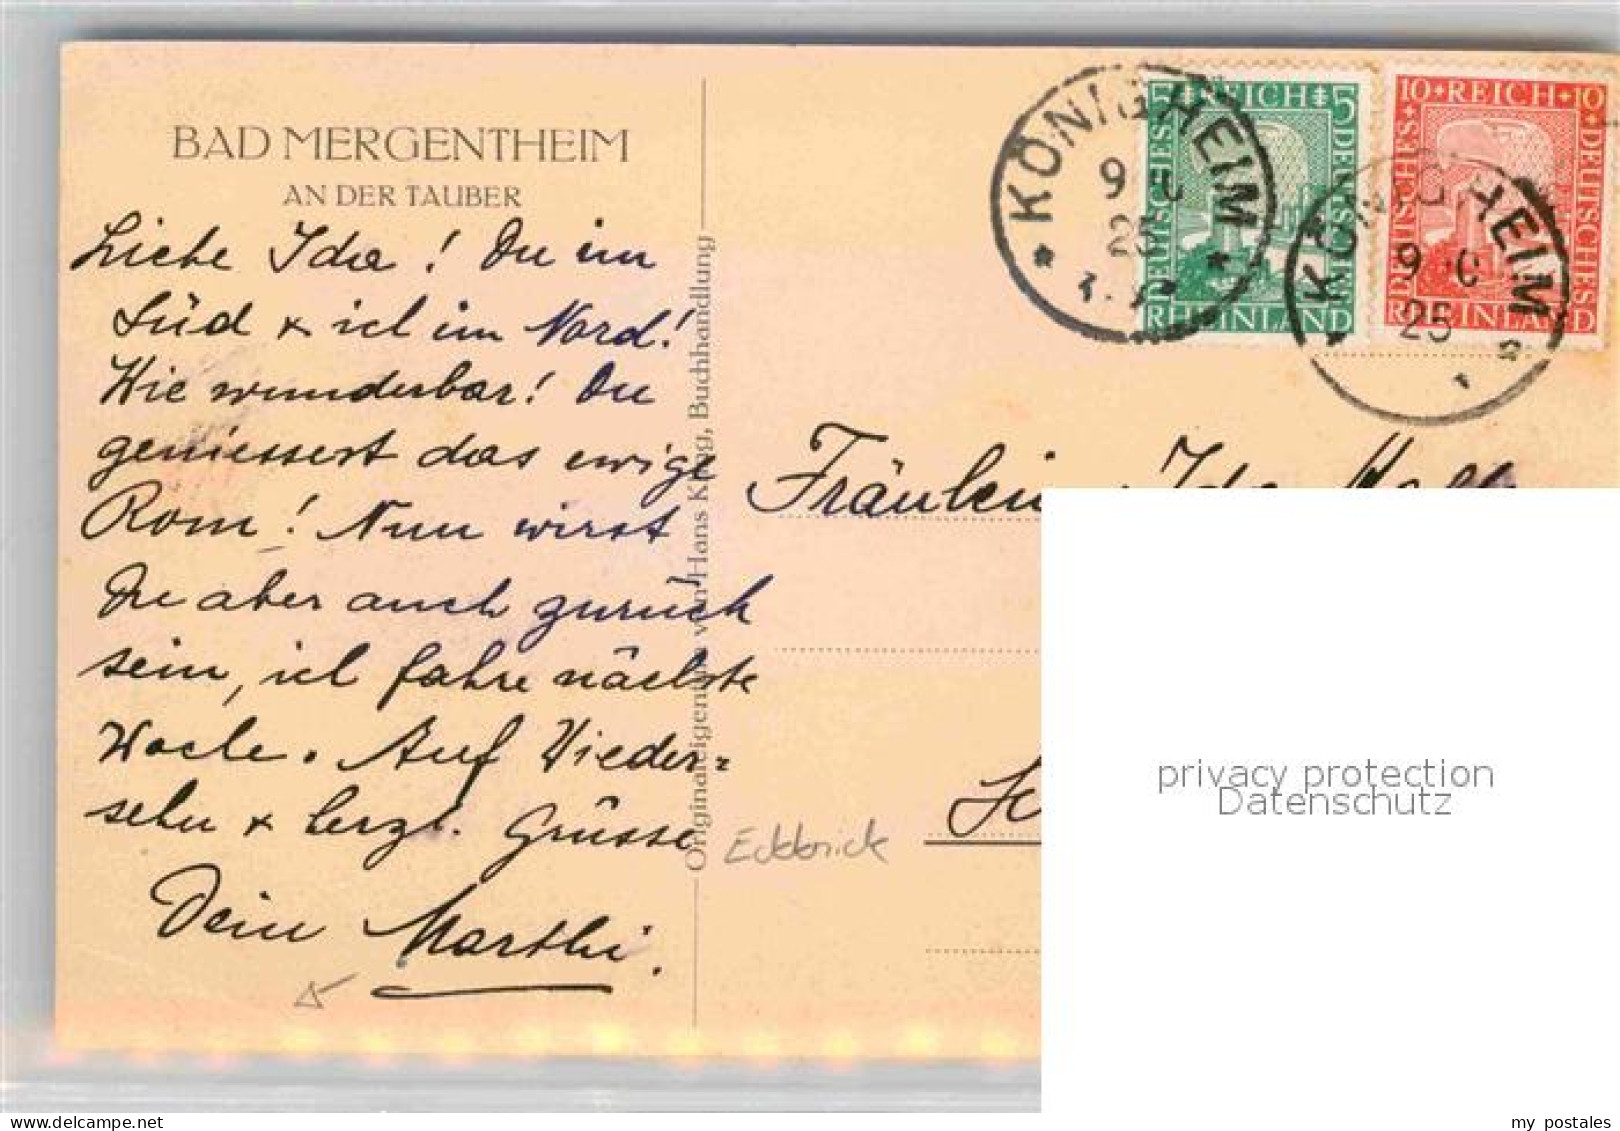 BAD MERGENTHEIM
AN DER TAUBER
Liebe Ida! Du im
Süd & ich im Nord!
Wie wunderbar! Du
geniessest das ewige
Rom! Nun wirst
Du aber auch zurück
sein, ich fahre nächste
Woche. Auf Wieder=
sehn & herzl. Grüsse
Dein Marthi.
Originaleigentum von Hans Kling, Buchhandlung
KÖNIGHEIM
9
25
5 REICH 5
DEUTSCHES
DEUTSCHES
RHEINLAND
10 REICH 10
DEUTSCHES
DEUTSCHES
RHEINLAND
KÖNIGHEIM
9
25
Fräulein Ida
Eckbrick
privacy protection
Datenschutz
my postales